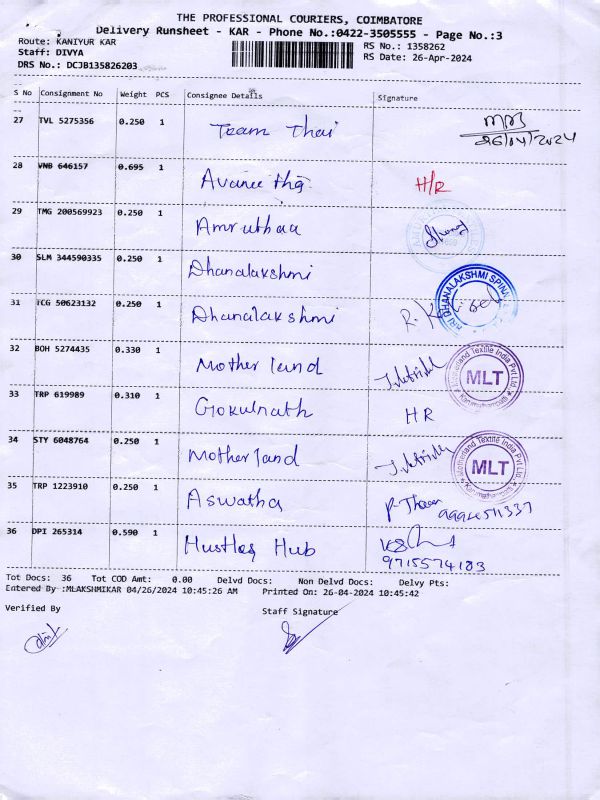 THE PROFESSIONAL COURIERS, COIMBATORE
Delivery Runsheet - KAR - Phone No.:0422-3505555 - Page No.:3
Route: KANIYUR KAR
RS No.: 1358262
Staff: DIVYA
RS Date: 26-Apr-2024
DRS No.: DCJB135826203
S No Consignment No Weight PCS Consignee Details Signature
27 TVL 5275356 0.250 1 Team Thai
26/04/2024
28 VNB 646157 0.695 1 Avaneetha H/R
29 TMG 200569923 0.250 1 Amruthaa
30 SLM 344590335 0.250 1 Dhanalakshmi
DHANALAKSHMI
31 TCG 50623132 0.250 1 Dhanalakshmi
32 BOH 5274435 0.330 1 Mother land
Motherland Textile India Pvt Ltd.
MLT
33 TRP 619989 0.310 1 Gokulnath HR
34 STY 6048764 0.250 1 Motherland
Motherland Textile India Pvt Ltd.
MLT
35 TRP 1223910 0.250 1 Aswatha
36 DPI 265314 0.590 1 Hustler Hub
9715574183
Tot Docs: 36 Tot COD Amt: 0.00 Delvd Docs: Non Delvd Docs: Delvy Pts:
Entered By :MLAKSHMIKAR 04/26/2024 10:45:26 AM Printed On: 26-04-2024 10:45:42
Verified By Staff Signature